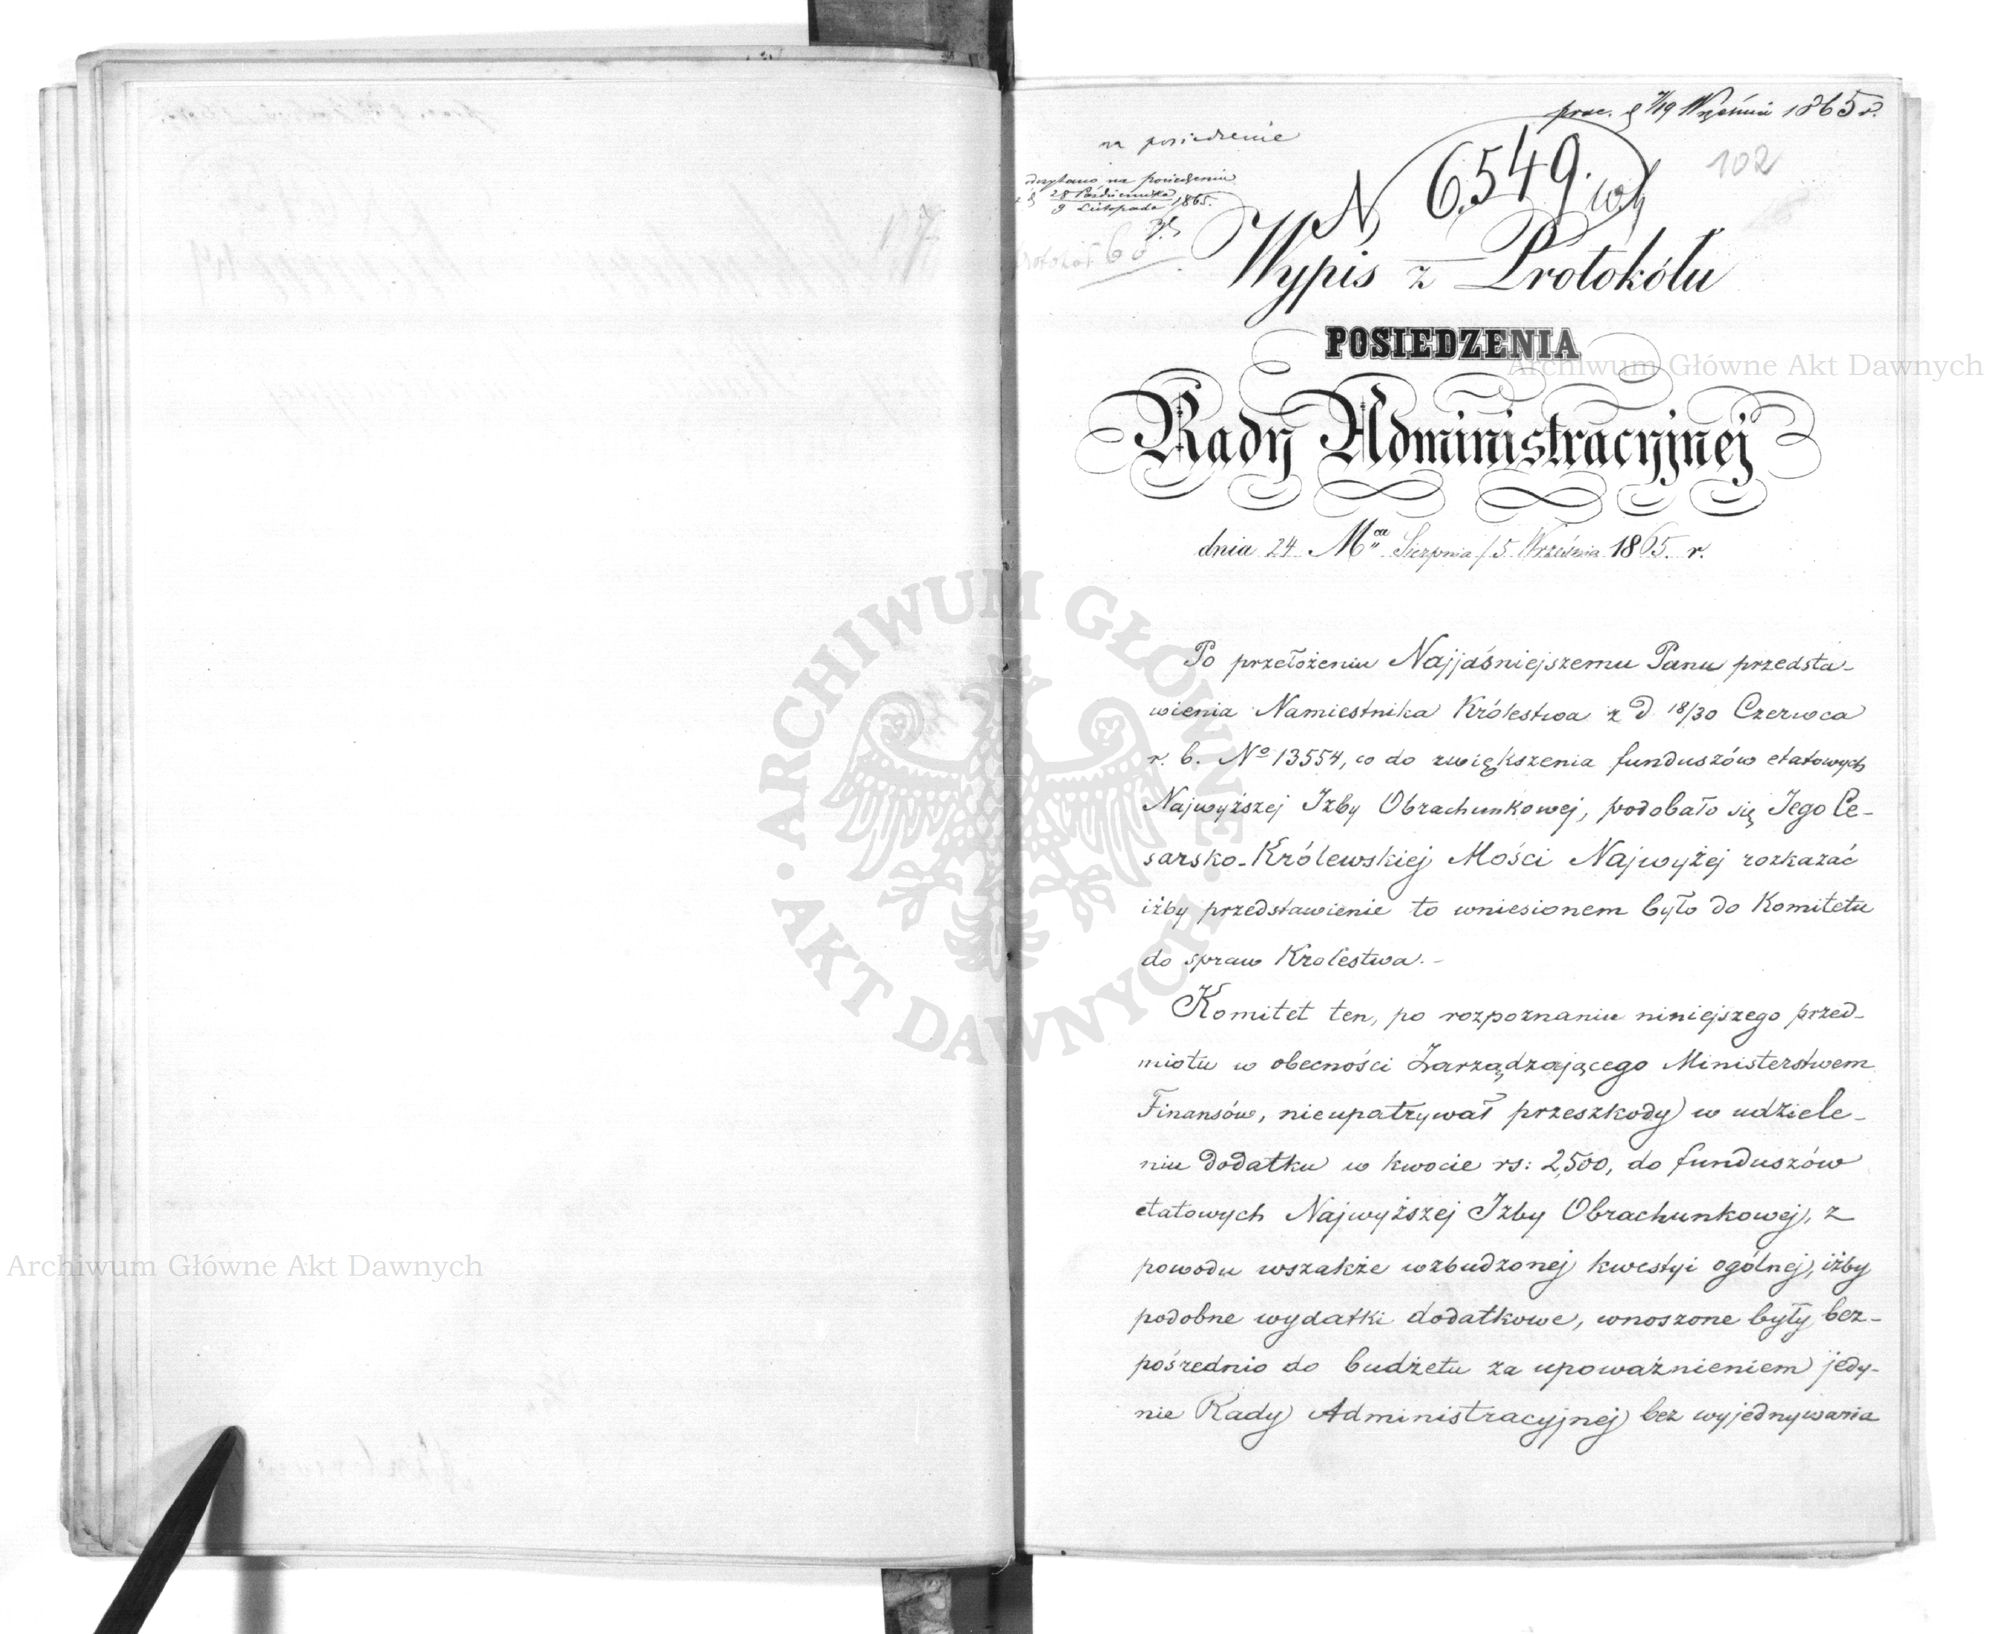 prac. d 7/19 Września 1865 r.
na posiedzenie
102
odczytano na posiedzeniu
d 28 Października
9 Listopada 1865.
N 6,549.
Wypis z Protokółu
POSIEDZENIA
Rady Administracyjnej
dnia 24 Mca Sierpnia / 5 Września 1865. r.
Po przełożeniu Najjaśniejszemu Panu przedsta-
wienia Namiestnika Królestwa z d 18/30 Czerwca
r. b. No 13554, co do zwiększenia funduszów etatowych
Najwyższej Izby Obrachunkowej, podobało się Jego Ce-
sarsko-Królewskiej Mości Najwyżej rozkazać
iżby przedstawienie to wniesionem było do Komitetu
do spraw Krolestwa.-
Komitet ten, po rozpoznaniu niniejszego przed-
miotu w obecności Zarządzającego Ministerstwem
Finansów, nieupatrywał przeszkody w udziele-
niu dodatku w kwocie rs: 2,500, do funduszów
etatowych Najwyższej Izby Obrachunkowej, z
powodu wszakże wzbudzonej kwestyi ogólnej, iżby
podobne wydatki dodatkowe, wnoszone były bez-
pośrednio do budżetu za upoważnieniem jedy-
nie Rady Administracyjnej bez wyjednywania
Archiwum Główne Akt Dawnych
Archiwum Główne Akt Dawnych
ARCHIWUM GŁÓWNE · AKT DAWNYCH ·